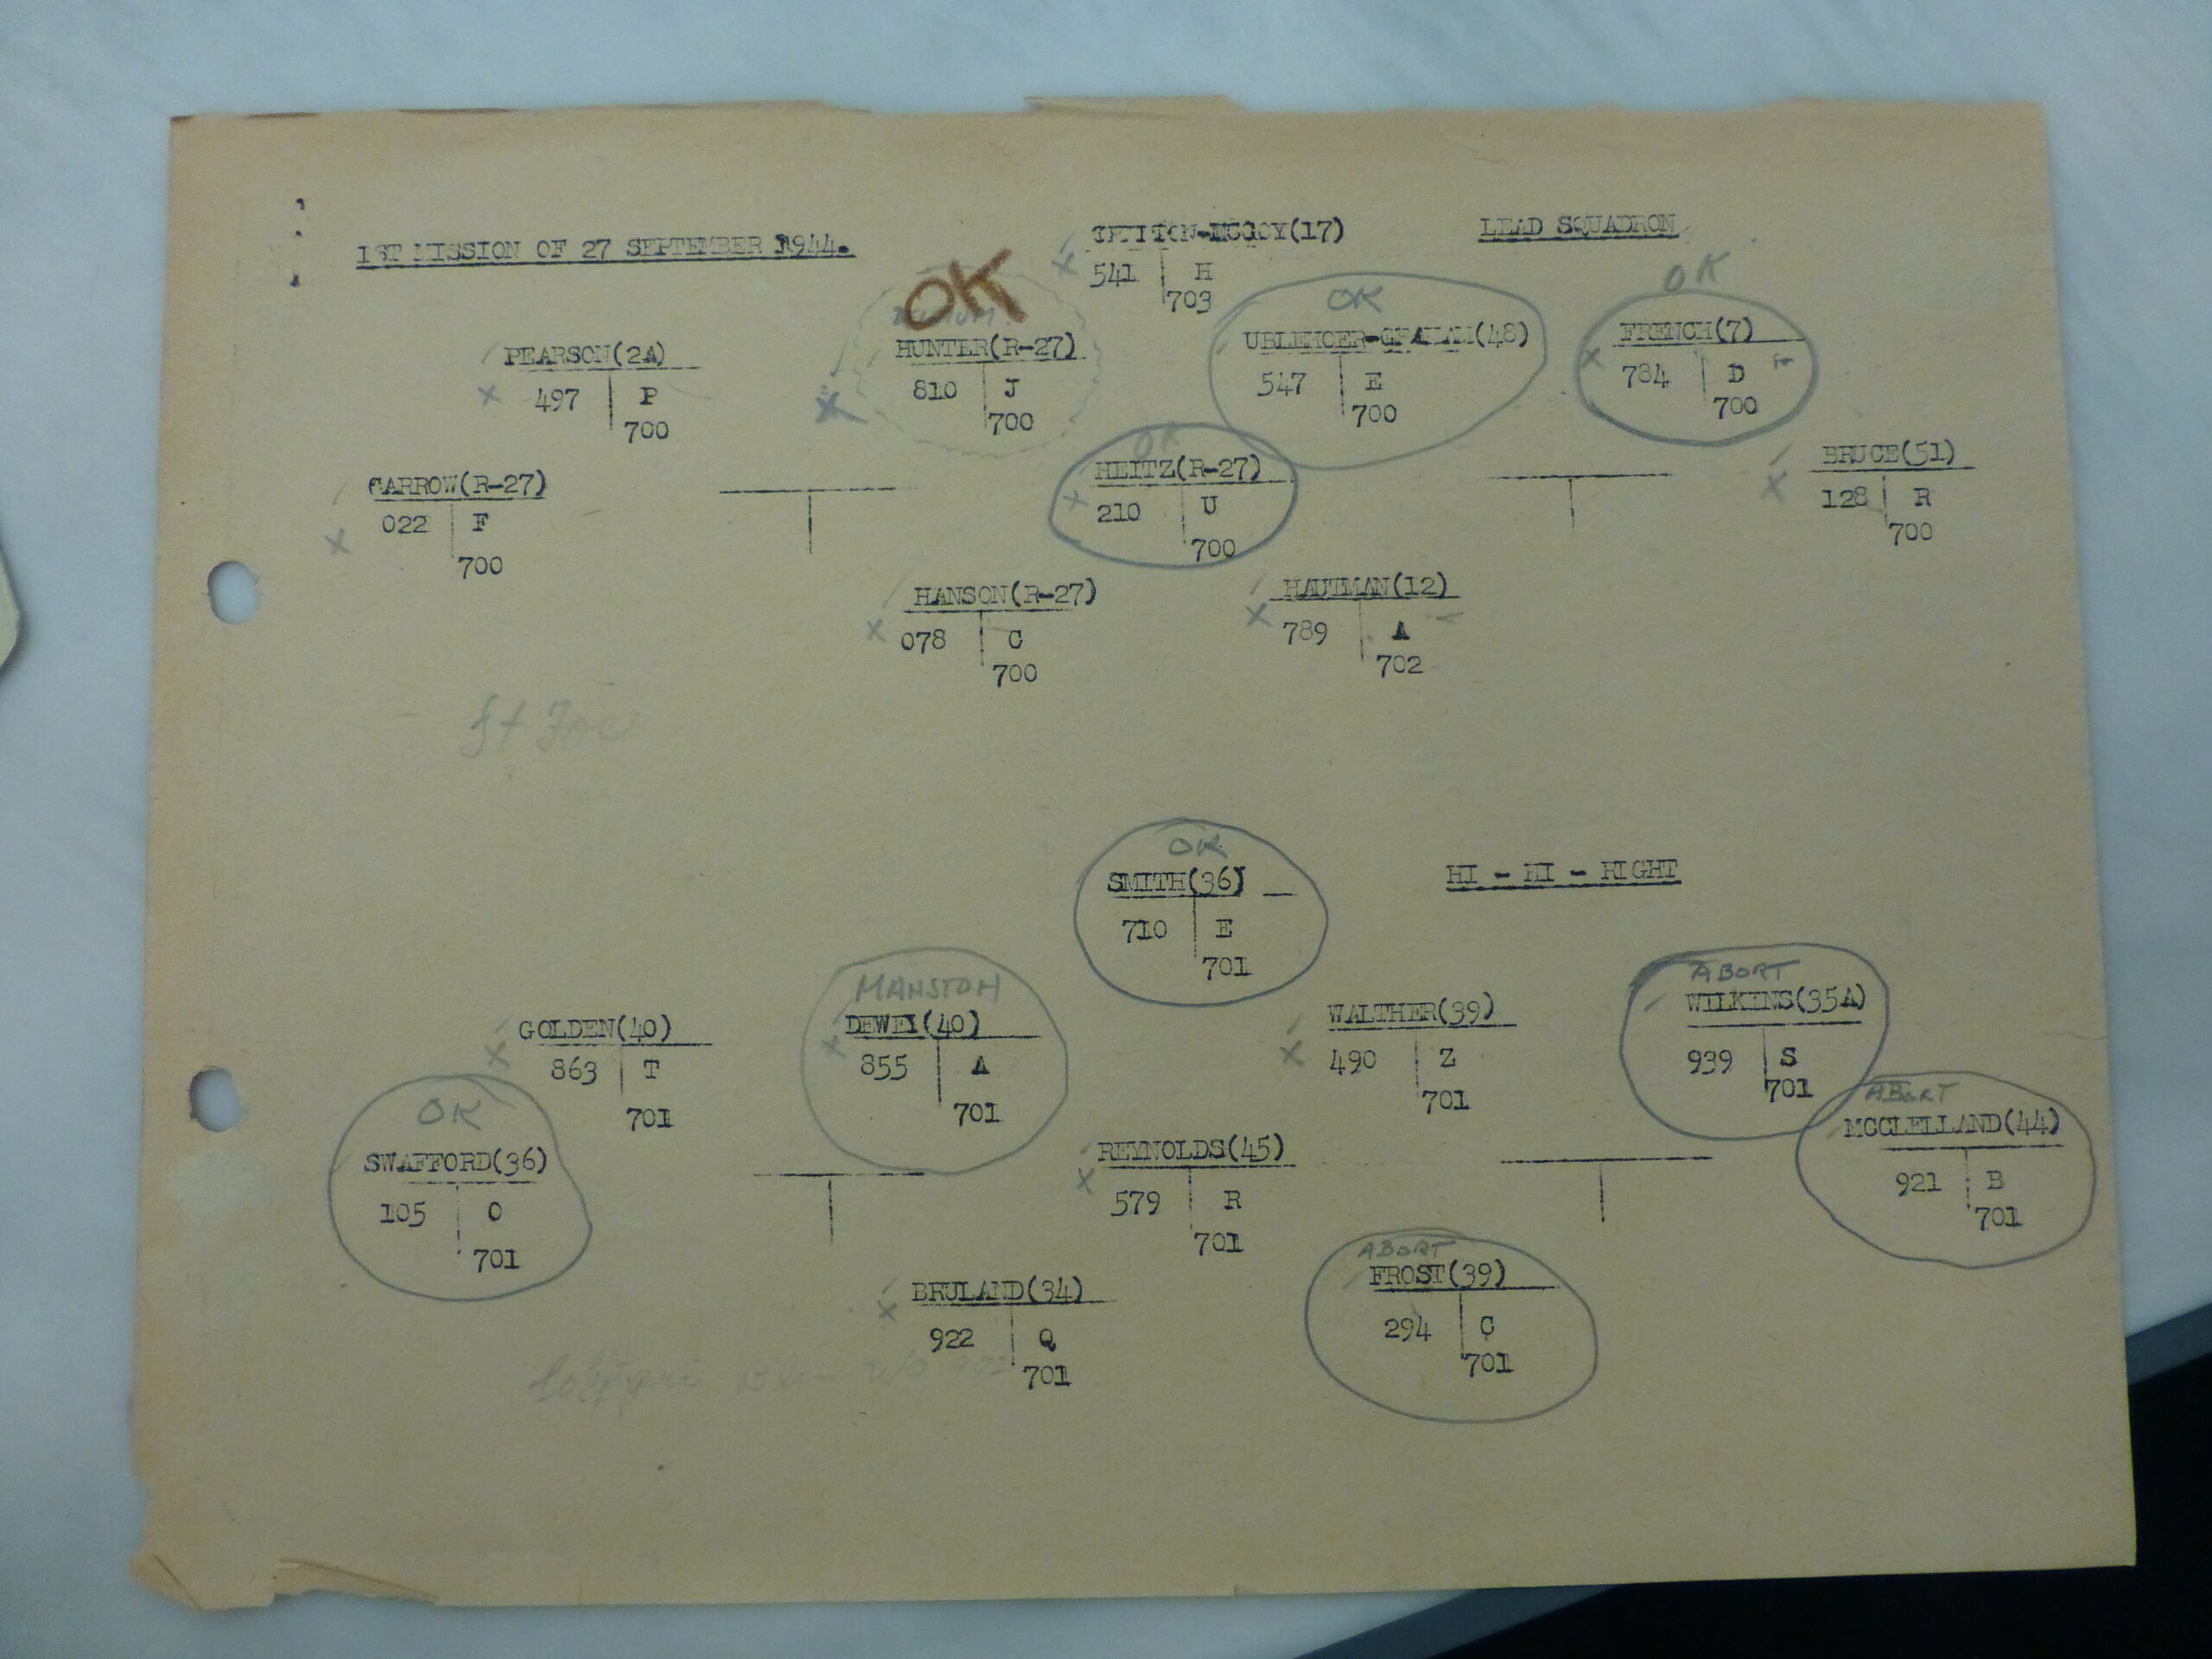 1ST MISSION OF 27 SEPTEMBER 1944.
LEAD SQUADRON
-MCCOY(17)
541 H
703
OK
HUNTER(R-27)
810 J
700
OK
UBLEHOER-GRAHAM(48)
547 E
700
OK
FRENCH(7)
784 D
700
PEARSON(2A)
497 P
700
CARROW(R-27)
022 F
700
OK
HEITZ(R-27)
210 U
700
BRUCE(51)
128 R
700
HANSON(R-27)
078 C
700
HAUTMAN(12)
789 A
702
HI - HI - RIGHT
OK
SMITH(36)
710 E
701
GOLDEN(40)
863 T
701
MANSTON
DEWEY(40)
855 A
701
WALTHER(39)
490 Z
701
ABORT
WILKINS(35A)
939 S
701
OK
SWAFFORD(36)
105 O
701
REYNOLDS(45)
579 R
701
ABORT
MCCLELLAND(44)
921 B
701
BRULAND(34)
922 Q
701
ABORT
FROST(39)
294 C
701